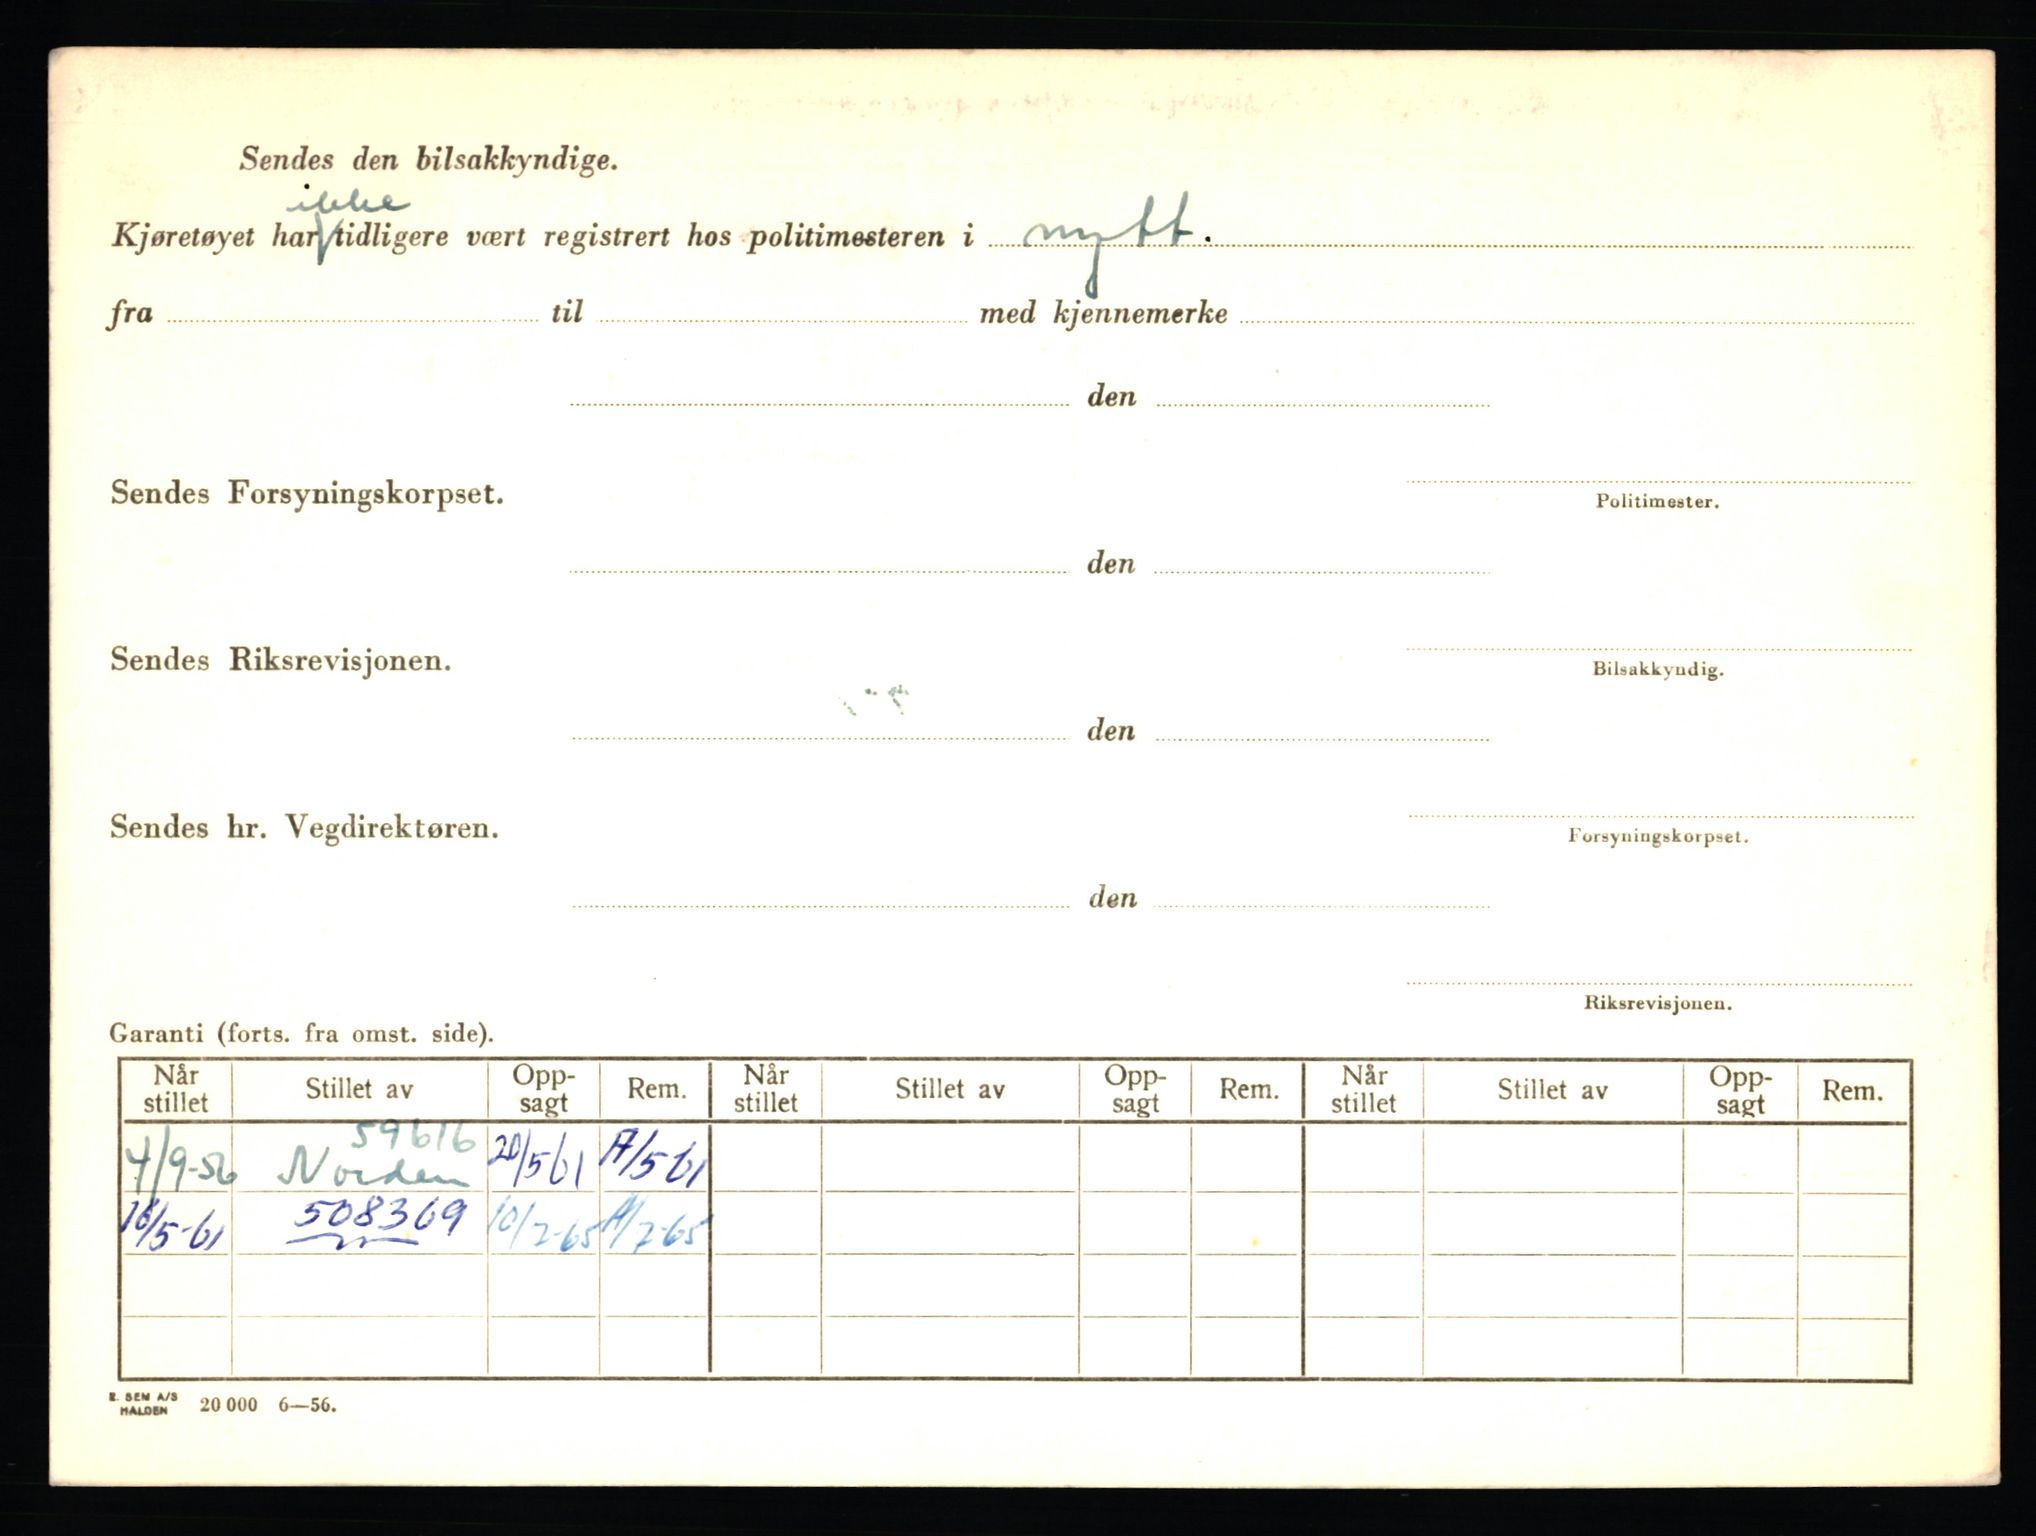 Sendes den bilsakkyndige.
ikke
Kjøretøyet har tidligere vært registrert hos politimesteren i nytt.
fra til med kjennemerke
den
Sendes Forsyningskorpset.
Politimester.
den
Sendes Riksrevisjonen.
Bilsakkyndig.
den
Sendes hr. Vegdirektøren.
Forsyningskorpset.
den
Riksrevisjonen.
Garanti (forts. fra omst. side).
Når stillet Stillet av Opp-sagt Rem. Når stillet Stillet av Opp-sagt Rem. Når stillet Stillet av Opp-sagt Rem.
59616
4/9-56 Norden 20/5 61 /5 61
16/5-61 508369 10/2-65 /2-65
E. SEM A/S HALDEN 20 000 6—56.